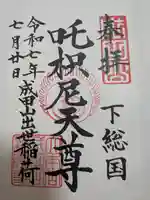 奉拝
下総国
吒枳尼天尊
令和七年成田出世稲荷
七月廿日